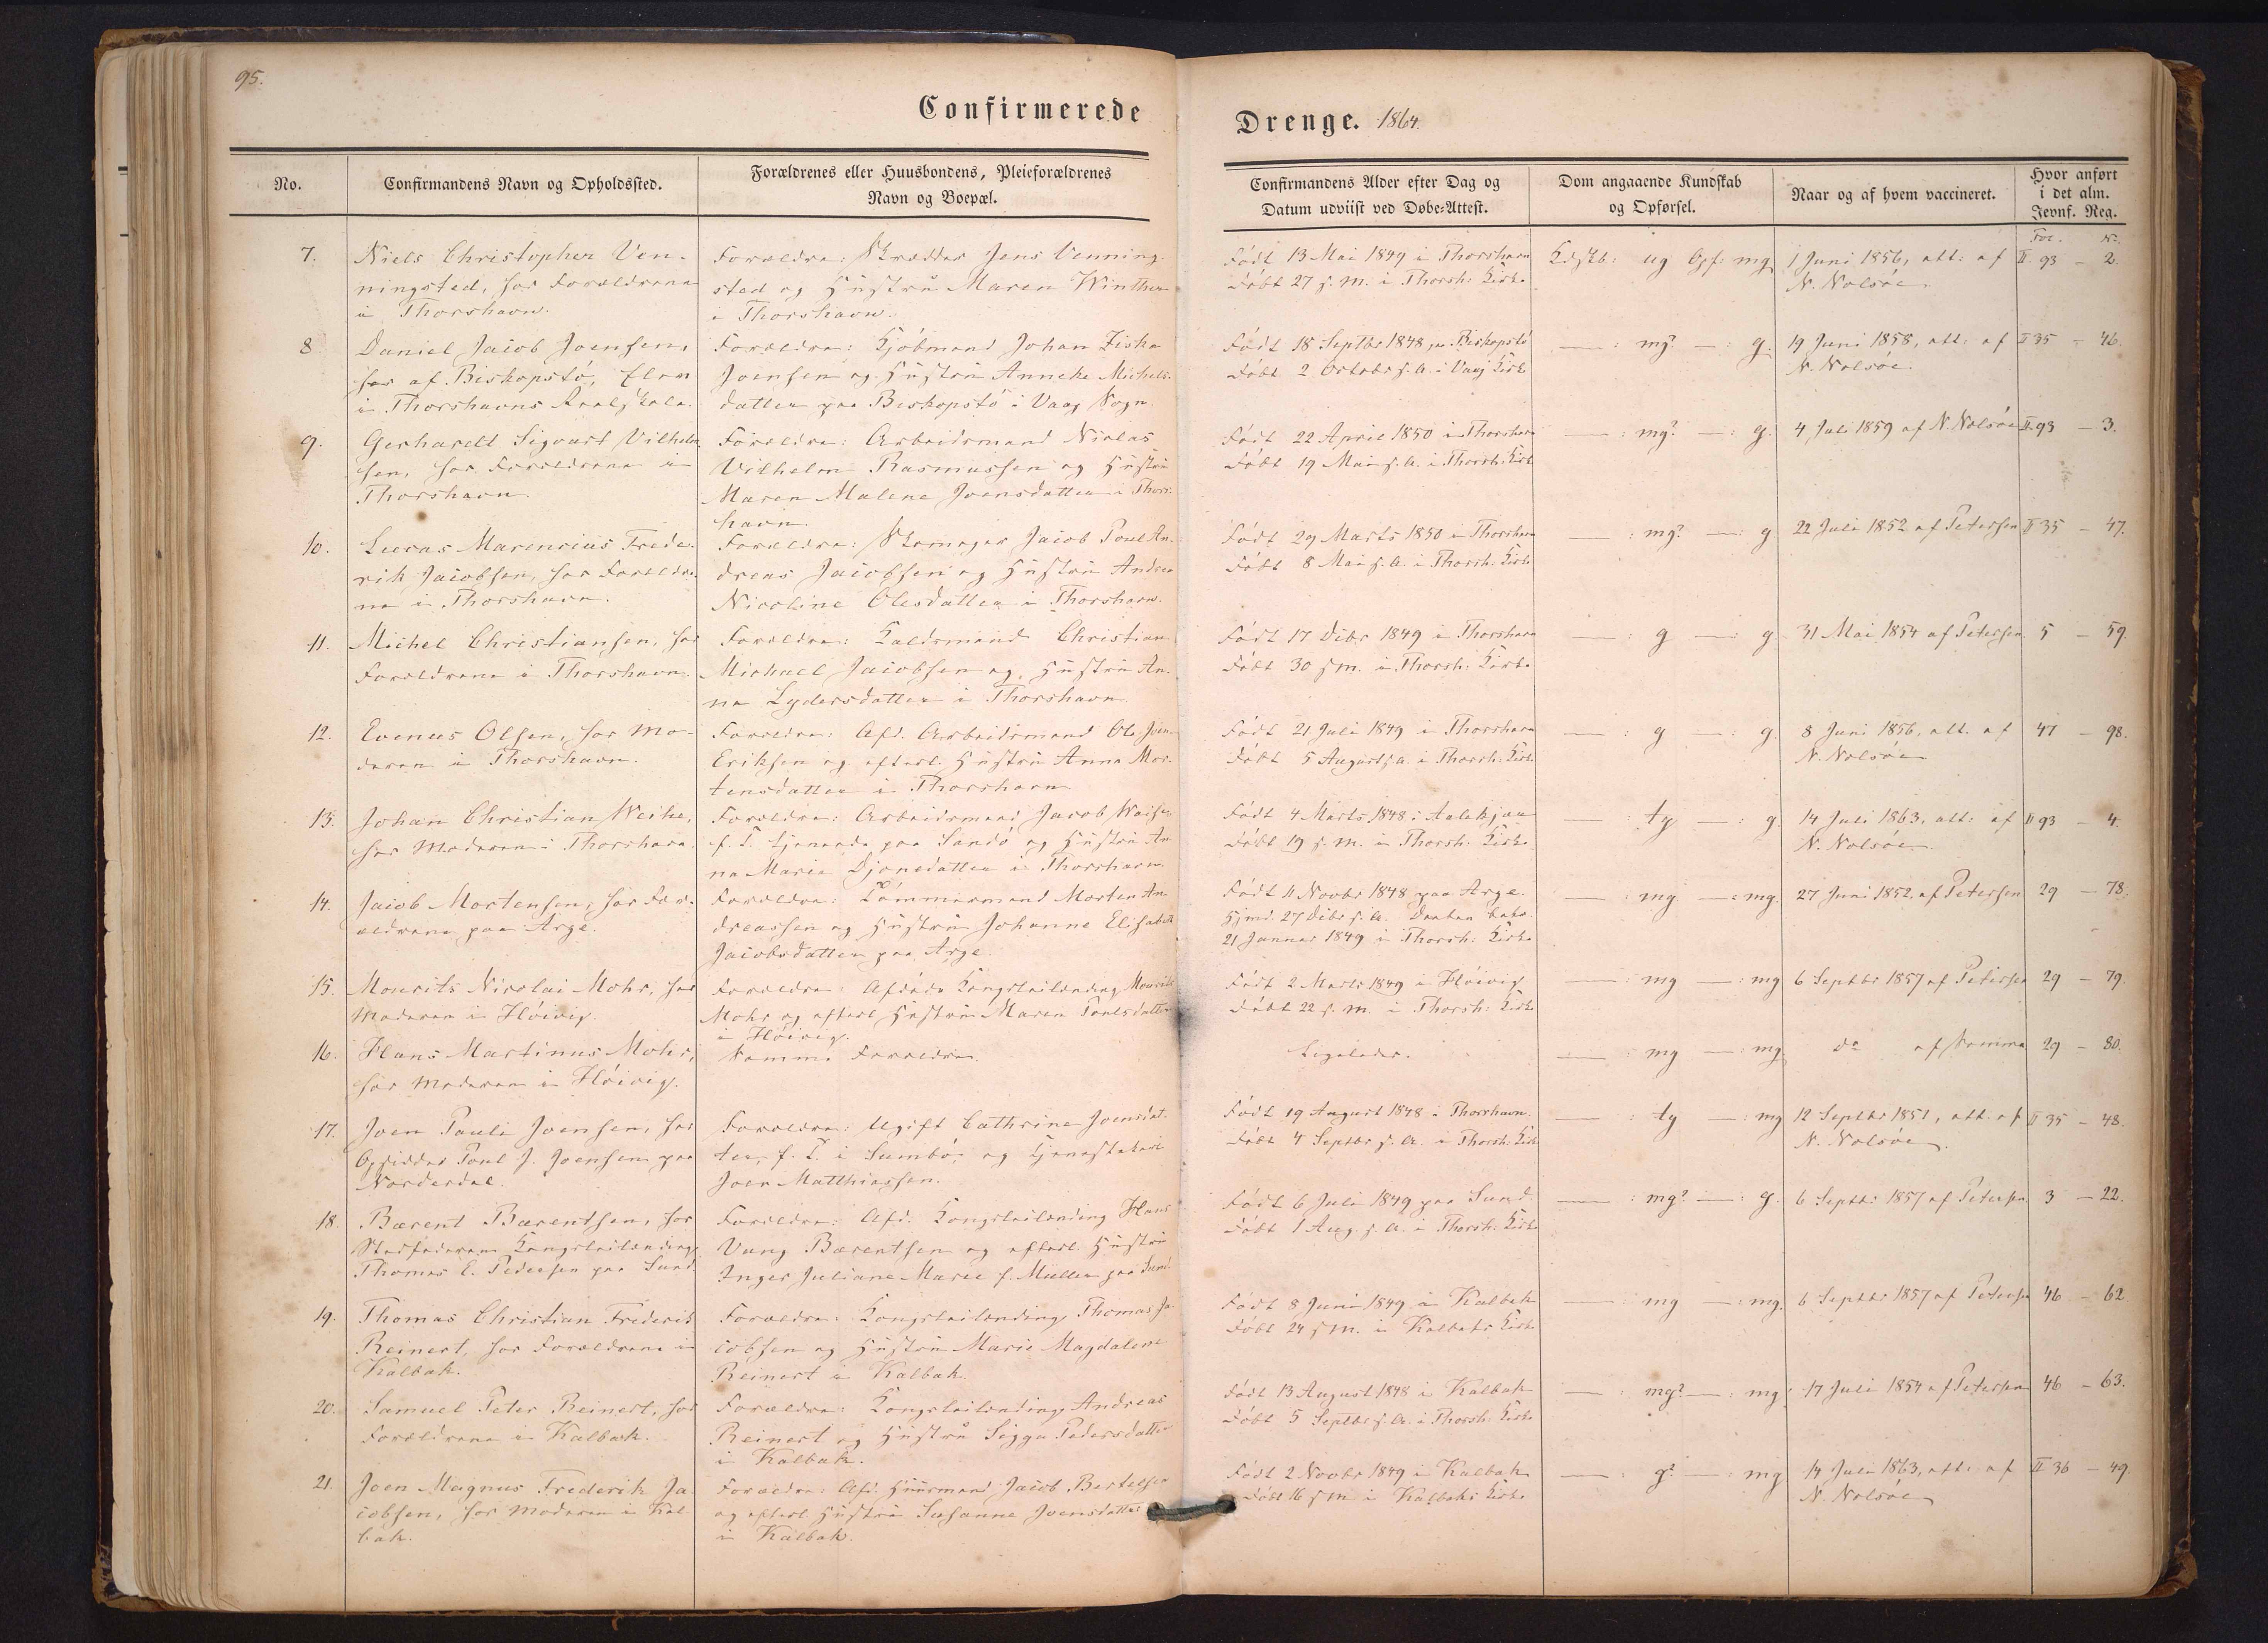 95.
Confirmerede
Drenge. 1864.
No.
Confirmandens Navn og Opholdssted.
Forældrenes eller Huusbondens, Pleieforældrenes
Navn og Boepæl.
Confirmandens Alder efter Dag og
Datum udviist ved Døbe-Attest.
Dom angaaende Kundskab
og Opførsel.
Naar og af hvem vaccineret.
Hvor anført
i det alm.
Jevnf. Reg.
Fol. No.
7.
Niels Christopher Ven-
ningsted, hos Forældrene
i Thorshavn.
Forældre: Skrædder Jens Venning-
sted og Hustru Maren Winther
i Thorshavn.
Født 13 Mai 1849 i Thorshavn
Døbt 27 s. M. i Thorsh: Kirke
Kdskb: ug Opf: mg
1 Juni 1856, att: af
N. Nolsøe.
II. 93 – 2.
8
Daniel Jacob Joensen,
hos af Biskopstö, Elev
i Thorshavns Realskole.
Forældre: Kjöbmand Johan Ziska
Joensen og Hustru Anneke Michels-
datter paa Biskopstö i Vaag Sogn.
Født 18 Septbr 1848 paa Biskopstö
Døbt 2 Octobr s. A. i Vaag Kirke
— : mg? — : g.
19 Juni 1858, att: af
N. Nolsøe.
II 35 – 46.
9.
Gerhardt Sigvart Vilhelm-
sen, hos Forældrene i
Thorshavn.
Forældre: Arbeidsmand Niclas
Vilhelm Rasmussen og Hustru
Maren Malene Joensdatter i Thors-
havn.
Født 22 April 1850 i Thorshavn
Døbt 19 Mai s. A. i Thorsh: Kirke
— : mg? — : g.
4 Juli 1859 af N. Nolsøe
II. 93 – 3.
10.
Lucas Marencius Frede-
rik Jacobsen, hos Forældre-
ne i Thorshavn.
Forældre: Skomager Jacob Poul An-
dreas Jacobsen og Hustru Andrea
Nicoline Olesdatter i Thorshavn.
Født 29 Marts 1850 i Thorshavn
Døbt 8 Mai s. A. i Thorsh: Kirke
— : mg? — : g
22 Juli 1852 af Petersen
II 35 – 47.
11.
Michel Christiansen, hos
Forældrene i Thorshavn.
Forældre: Kaldsmand Christian
Michael Jacobsen og Hustru An-
na Lydersdatter i Thorshavn
Født 17 Decbr 1849 i Thorshavn
Døbt 30 s M. i Thorsh: Kirke
— : g — : g.
31 Mai 1854 af Petersen
5 – 59.
12.
Evenus Olsen, hos Mo-
deren i Thorshavn.
Forældre: Afd. Arbeidsmand Ole Joen-
Eriksen og efterl. Hustru Anna Mor-
tensdatter i Thorshavn
Født 21 Juli 1849 i Thorshavn
Døbt 5 August s. A. i Thorsh: Kirke
— : g — : g.
8 Juni 1856, att. af
N. Nolsøe
47 – 98.
13.
Johan Christian Weihe,
hos Moderen i Thorshavn.
Forældre: Arbeidsmand Jacob
f. T. tjenende paa Sandö og Hustru An-
na Marie Djonedatter i Thorshavn.
Født 4 Marts 1848 i
Døbt 19 s. M. i Thorsh: Kirke
— : tg — : g.
14 Juli 1863, att: af
N. Nolsøe.
II 93 – 4.
14.
Jacob Mortensen, hos For-
ældrene paa Arge.
Forældre: Tömmermand Morten An-
dreassen og Hustru Johanne Elisabeth
Jacobsdatter paa Arge.
Født 11 Novbr 1848 paa Arge.
Hjmd. 27 Decbr s. A. Daaben bekr.
21 Januar 1849 i Thorsh: Kirke
— : mg — : mg.
27 Juni 1852, af Petersen
29 – 78.
15.
Mourits Nicolai Mohr, hos
Moderen i Höivig.
Forældre: Afdøde Kongsleilending Mourits
Mohr og efterl Hustru Maren Poulsdatter
i Höivig.
Født 2 Marts 1849 i Höivig
Døbt 22 s. M. i Thorsh: Kirke
— : mg — : mg
6 Septbr 1857 af Petersen
29 – 79.
16.
Hans Martinus Mohr,
hos Moderen i Höivig.
Samme Forældre.
Ligeledes.
— : mg — : mg.
do af Samme
29 – 80.
17.
Joen Pauli Joensen, hos
Opsidder Poul J. Joensen paa
Norderdal.
Forældre: Ugift Cathrine Joensdat-
ter, f. T. i Sumbö, og Tjenestekarl
Joen Matthiassen.
Født 19 August 1848 i Thorshavn.
Døbt 4 Septbr s. A. i Thorsh: Kirke
— : tg — : mg
12 Septbr 1851, att. af
N. Nolsøe
II 35 – 48.
18.
Bærent Bærentsen, hos
Stedfaderen Kongsleilending
Thomas E. Pedersen paa Sund
Forældre: Afd. Kongsleilending Hans
Vang Bærentsen og efterl. Hustru
Inger Juliane Marie f. Müller paa Sund
Født 6 Juli 1849 paa Sund.
Døbt 1 Aug. s. A. i Thorsh: Kirke
— : mg? — : g.
6 Septbr 1857 af Petersen
3 – 22.
19.
Thomas Christian Frederik
Reinert, hos Forældrene i
Kalbak.
Forældre: Kongsleilending Thomas Ja-
cobsen og Hustru Marie Magdalene
Reinert i Kalbak.
Født 8 Juni 1849 i Kalbak
Døbt 24 s M. i Kalbaks Kirke
— : mg — : mg.
6 Septbr 1857 af Petersen
46 – 62
20.
Samuel Peter Reinert, hos
Forældrene i Kalbak.
Forældre: Kongsleilending Andreas
Reinert og Hustru Sigga Pedersdatter
i Kalbak.
Født 13 August 1848 i Kalbak
Døbt 5 Septbr s. A. i Thorsh: Kirke
— : mg? — : mg
17 Juli 1854 af Petersen
46 – 63.
21.
Joen Magnus Frederik Ja-
cobsen, hos Moderen i Kal-
bak.
Forældre: Afd. Huusmand Jacob Bertelsen
og efterl. Hustru Susanne Joensdatter
i Kalbak.
Født 2 Novbr 1849 i Kalbak
Døbt 16 s M. i Kalbaks Kirke
— : g? — : mg
14 Juli 1863, att: af
N. Nolsøe
II 36 – 49.